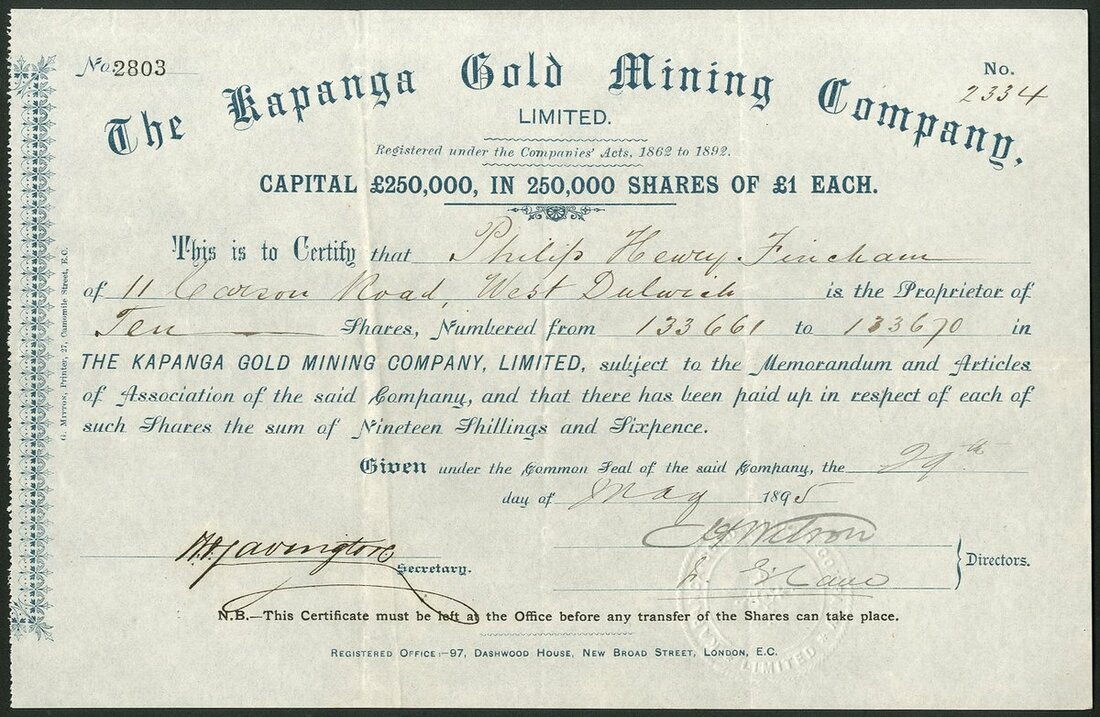 No. 2803
No.
2334
The Kapanga Gold Mining Company,
LIMITED.
Registered under the Companies' Acts, 1862 to 1892.
CAPITAL £250,000, IN 250,000 SHARES OF £1 EACH.
This is to Certify that Philip Henry Fincham
of 11 Carson Road, West Dulwich is the Proprietor of
Ten Shares, Numbered from 133661 to 133670 in
THE KAPANGA GOLD MINING COMPANY, LIMITED, subject to the Memorandum and Articles
of Association of the said Company, and that there has been paid up in respect of each of
such Shares the sum of Nineteen Shillings and Sixpence.
Given under the Common Seal of the said Company, the 29th
day of May 1895
Wilson
Secretary.
Directors.
N.B.—This Certificate must be left at the Office before any transfer of the Shares can take place.
REGISTERED OFFICE:—97, DASHWOOD HOUSE, NEW BROAD STREET, LONDON, E.C.
G. MITTON, Printer, 27, Camomile Street, E.C.
LIMITED